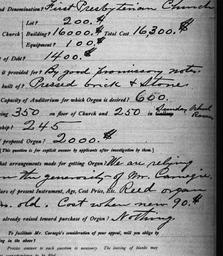 nd Denomination? First Presbyterian Church
Lot? 200.
Church Building? 16000. Total Cost 16300.
Equipment? 100.
of Debt? 1400.
provided for? By good promissory notes.
built of? Pressed brick & Stone.
Capacity of Auditorium for which Organ is desired? 600.
ing 350 on floor of Church and 250 in Sunday School Room
ship? 245
proposed Organ? 2000.
[This question is for explicit answer by applicants after investigation by them.]
hat arrangements made for getting Organ? We are relying
on the generosity of Mr. Carnegie.
ture of present Instrument, Age, Cost Price, &c. Reed organ
old. Cost when new 90.$
already raised toward purchase of Organ? Nothing.
To facilitate Mr. Carnegie's consideration of your appeal, will you oblige by
ing in the above?
Precise answer to each question is necessary. The leaving of blanks may